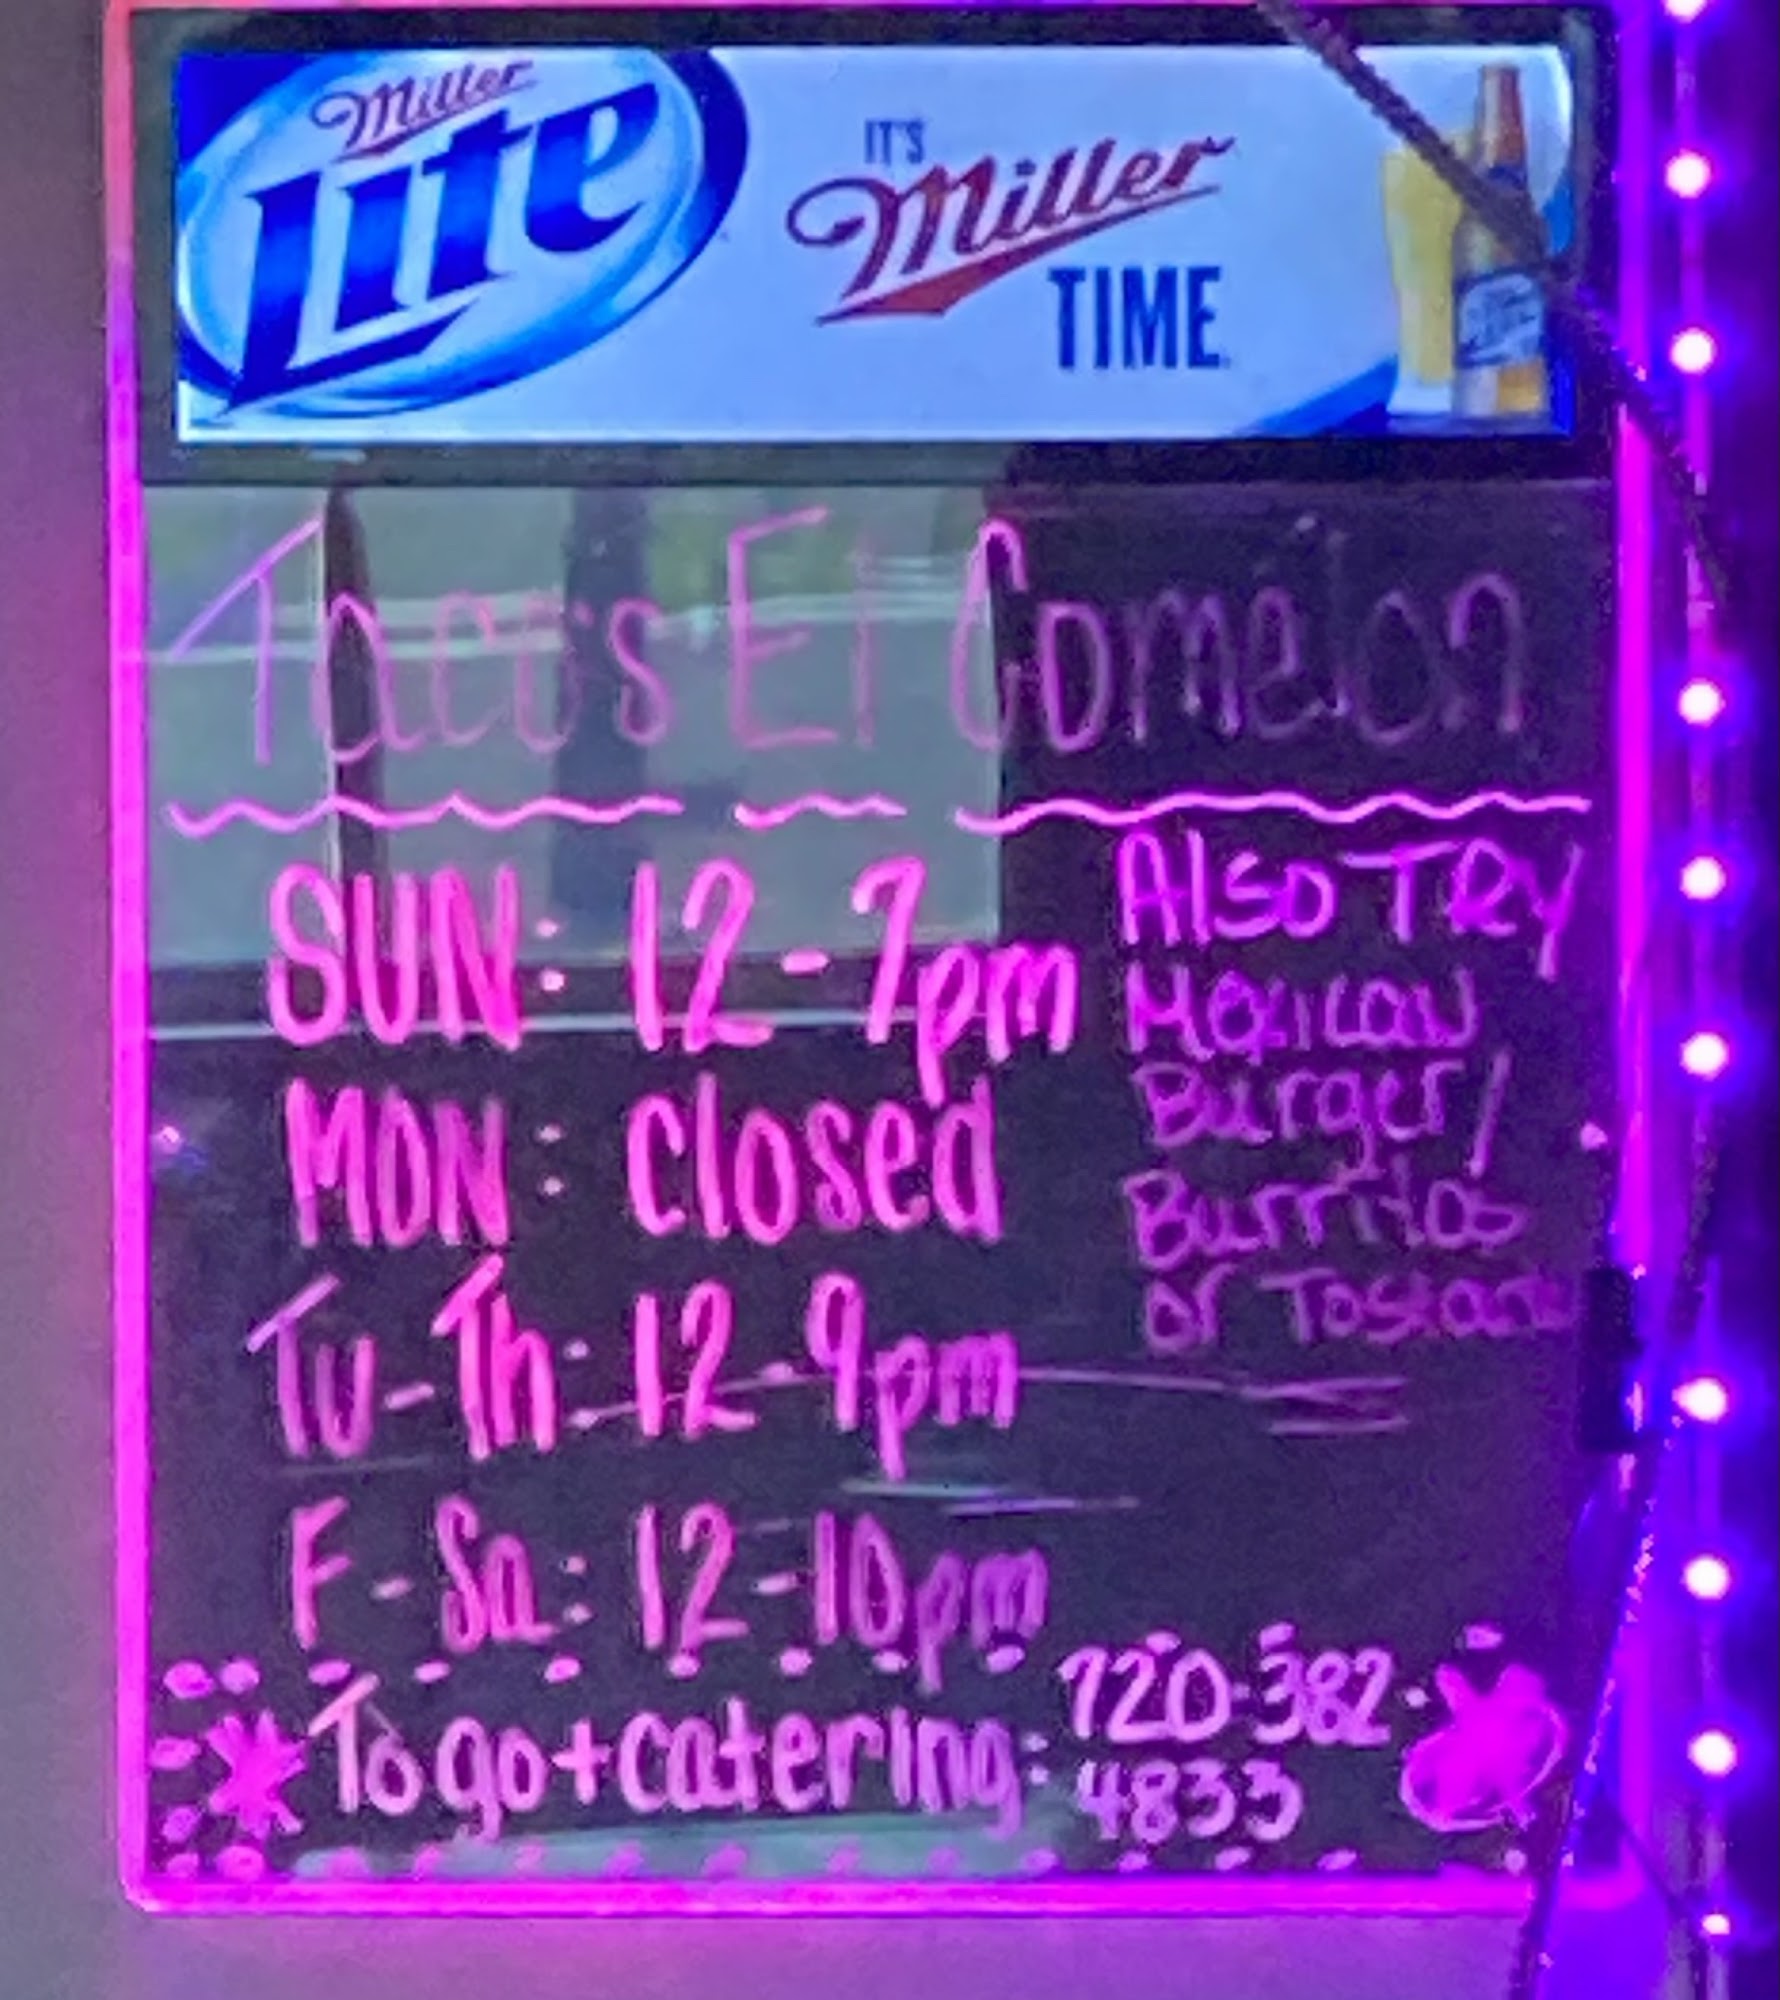 Miller
Lite
IT'S
Miller
TIME
Tacos El Comelon
SUN: 12-7pm
MON: closed
Tu-Th: 12-9pm
F-Sa: 12-10pm
Also TRY
Mexican
Burger/
Burritos
or
To go + catering: 720-382-
4833